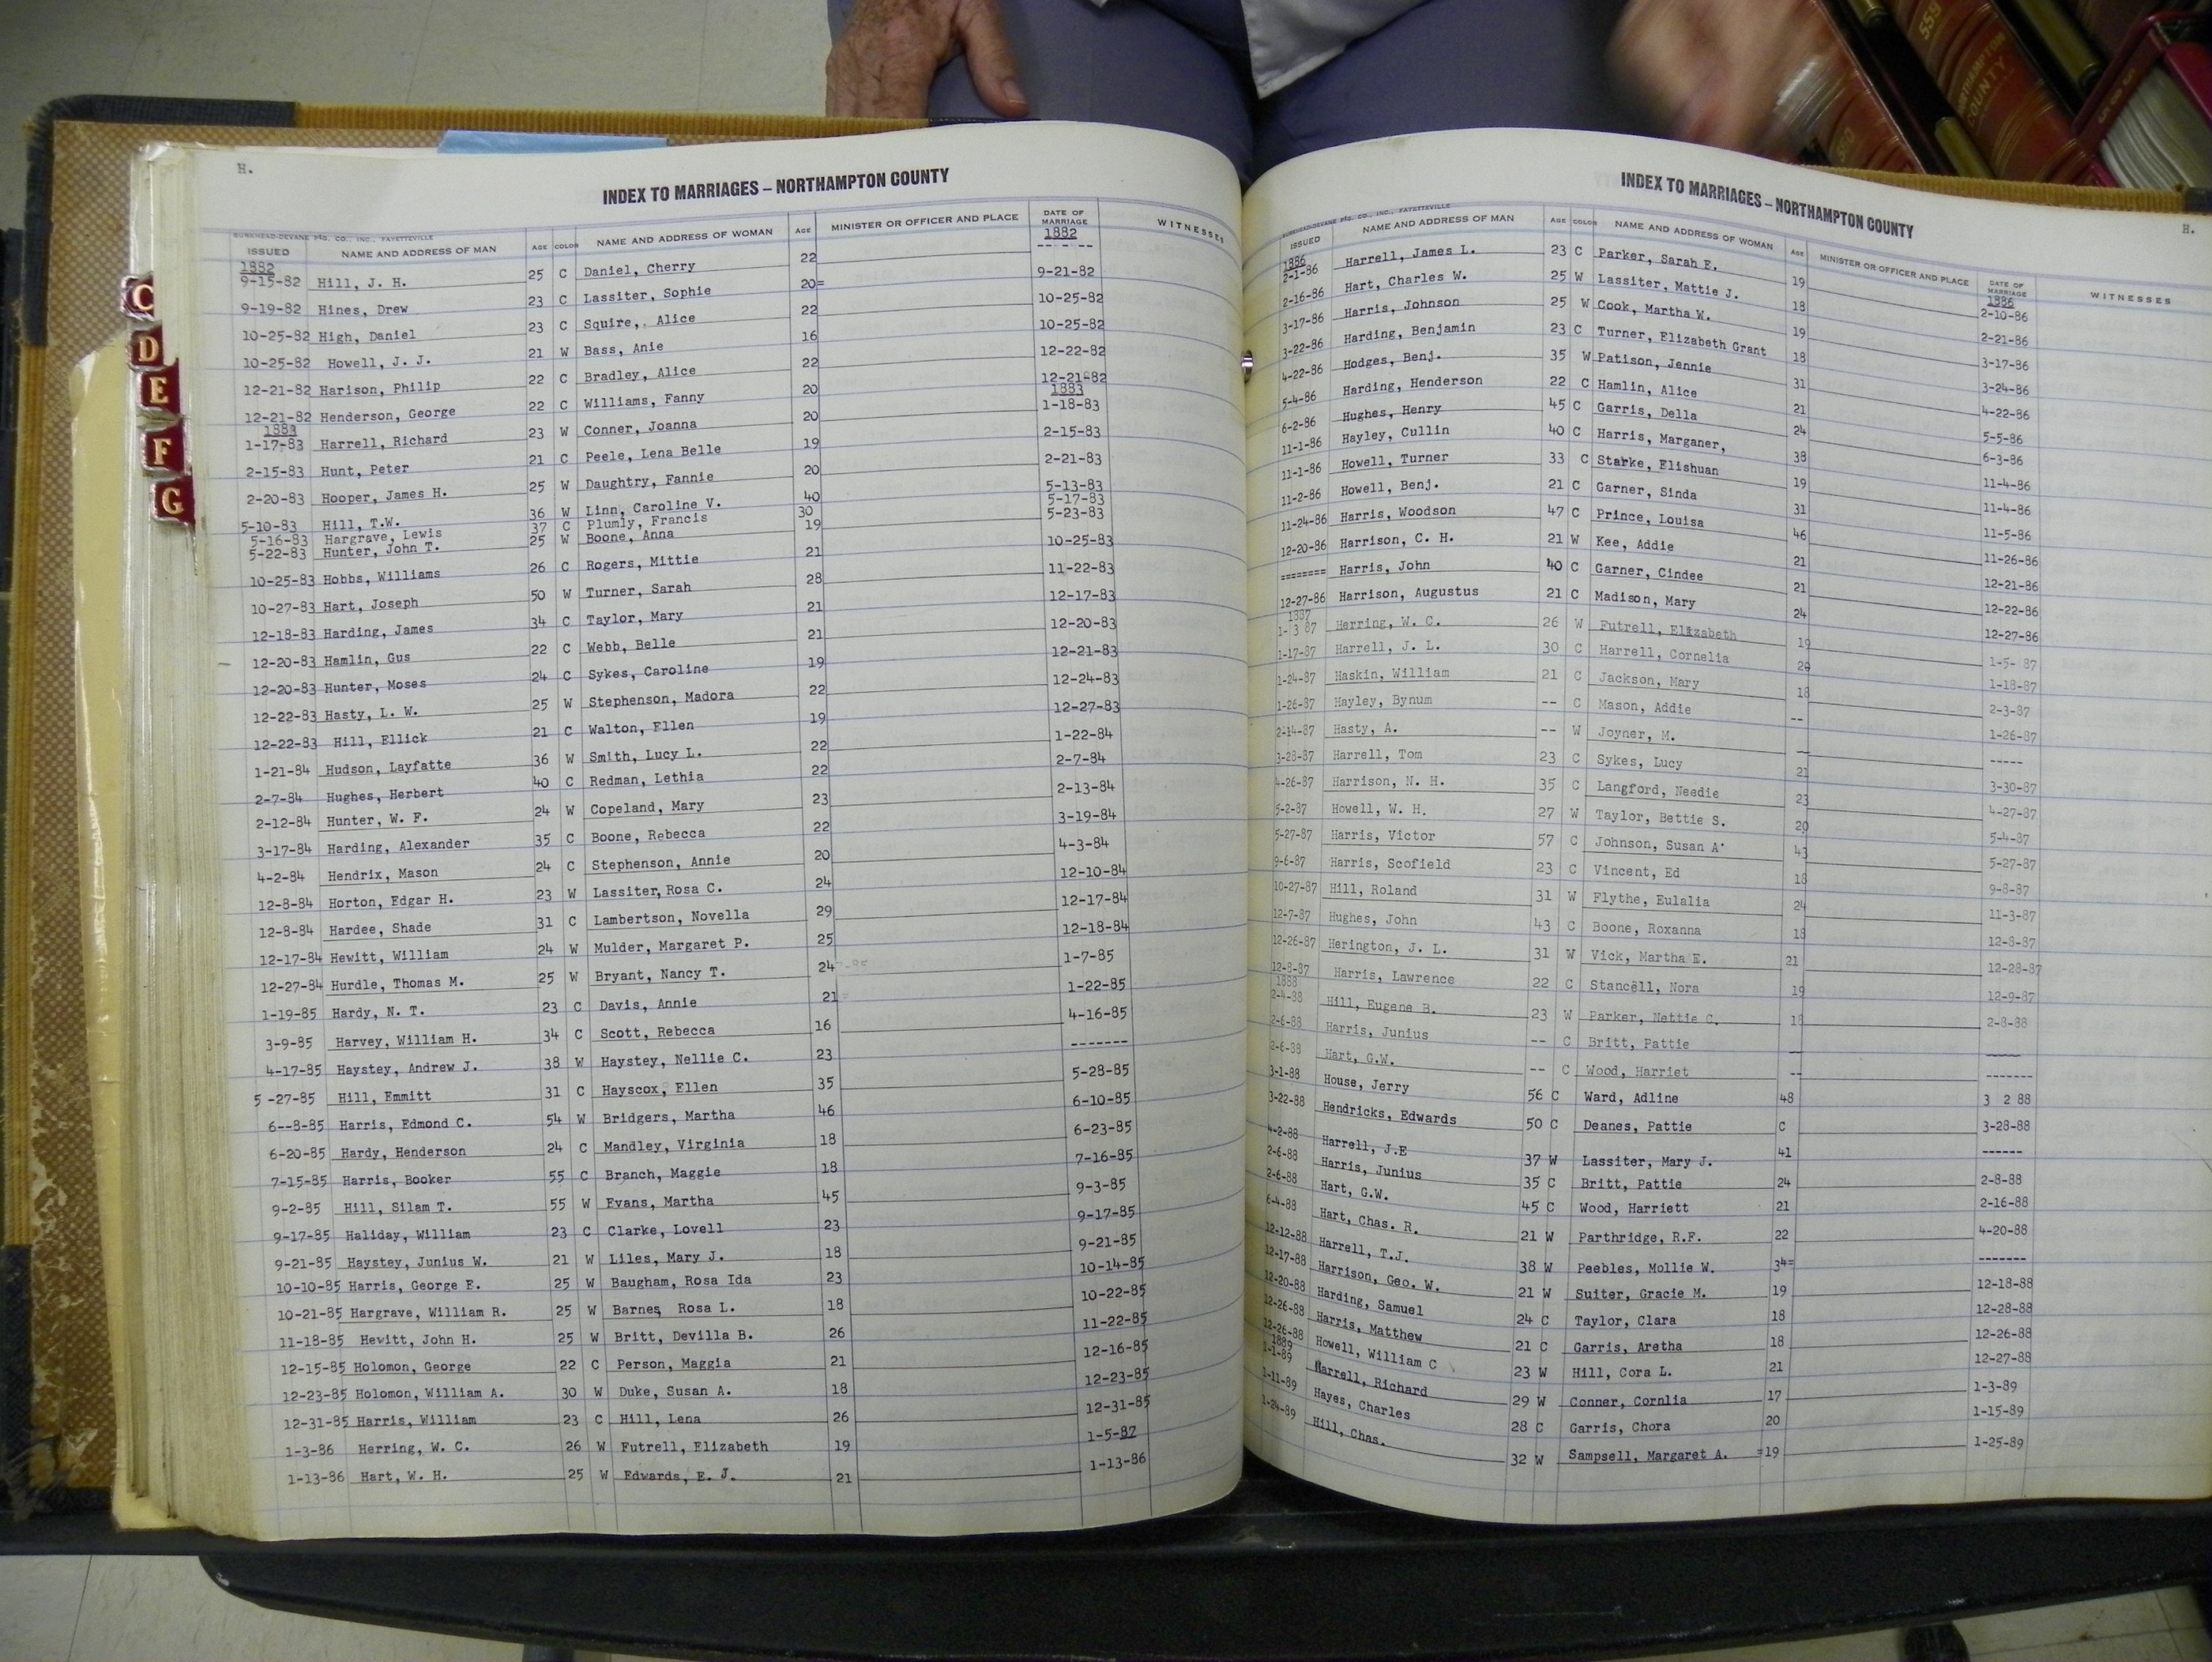 H.
INDEX TO MARRIAGES – NORTHAMPTON COUNTY
BURKHEAD-DEVANE P'TG. CO., INC., FAYETTEVILLE
ISSUED NAME AND ADDRESS OF MAN AGE COLOR NAME AND ADDRESS OF WOMAN AGE MINISTER OR OFFICER AND PLACE DATE OF MARRIAGE WITNESSES
1882 1882
9-15-82 Hill, J. H. 25 C Daniel, Cherry 22 ------
9-19-82 Hines, Drew 23 C Lassiter, Sophie 20= 9-21-82
10-25-82 High, Daniel 23 C Squire,. Alice 22 10-25-82
10-25-82 Howell, J. J. 21 W Bass, Anie 16 10-25-82
12-21-82 Harison, Philip 22 C Bradley, Alice 22 12-22-82
12-21-82 Henderson, George 22 C Williams, Fanny 20 12-21-82
1883 1883
1-17-83 Harrell, Richard 23 W Conner, Joanna 20 1-18-83
2-15-83 Hunt, Peter 21 C Peele, Lena Belle 19 2-15-83
2-20-83 Hooper, James H. 25 W Daughtry, Fannie 20 2-21-83
5-10-83 Hill, T.W. 36 W Linn, Caroline V. 40 5-13-83
5-16-83 Hargrave, Lewis 37 C Plumly, Francis 30 5-17-83
5-22-83 Hunter, John T. 25 W Boone, Anna 19 5-23-83
10-25-83 Hobbs, Williams 26 C Rogers, Mittie 21 10-25-83
10-27-83 Hart, Joseph 50 W Turner, Sarah 28 11-22-83
12-18-83 Harding, James 34 C Taylor, Mary 21 12-17-83
12-20-83 Hamlin, Gus 22 C Webb, Belle 21 12-20-83
12-20-83 Hunter, Moses 24 C Sykes, Caroline 19 12-21-83
12-22-83 Hasty, L. W. 25 W Stephenson, Madora 22 12-24-83
12-22-83 Hill, Ellick 21 C Walton, Ellen 19 12-27-83
1-21-84 Hudson, Layfatte 36 W Smith, Lucy L. 22 1-22-84
2-7-84 Hughes, Herbert 40 C Redman, Lethia 22 2-7-84
2-12-84 Hunter, W. F. 24 W Copeland, Mary 23 2-13-84
3-17-84 Harding, Alexander 35 C Boone, Rebecca 22 3-19-84
4-2-84 Hendrix, Mason 24 C Stephenson, Annie 20 4-3-84
12-8-84 Horton, Edgar H. 23 W Lassiter, Rosa C. 24 12-10-84
12-8-84 Hardee, Shade 31 C Lambertson, Novella 29 12-17-84
12-17-84 Hewitt, William 24 W Mulder, Margaret P. 25 12-18-84
12-27-84 Hurdle, Thomas M. 25 W Bryant, Nancy T. 24 1-7-85
1-19-85 Hardy, N. T. 23 C Davis, Annie 21 1-22-85
3-9-85 Harvey, William H. 34 C Scott, Rebecca 16 4-16-85
4-17-85 Haystey, Andrew J. 38 W Haystey, Nellie C. 23 -------
5 -27-85 Hill, Emmitt 31 C Hayscox, Ellen 35 5-28-85
6--8-85 Harris, Edmond C. 54 W Bridgers, Martha 46 6-10-85
6-20-85 Hardy, Henderson 24 C Mandley, Virginia 18 6-23-85
7-15-85 Harris, Booker 55 C Branch, Maggie 18 7-16-85
9-2-85 Hill, Silam T. 55 W Evans, Martha 45 9-3-85
9-17-85 Haliday, William 23 C Clarke, Lovell 23 9-17-85
9-21-85 Haystey, Junius W. 21 W Liles, Mary J. 18 9-21-85
10-10-85 Harris, George E. 25 W Baugham, Rosa Ida 23 10-14-85
10-21-85 Hargrave, William R. 25 W Barnes, Rosa L. 18 10-22-85
11-18-85 Hewitt, John H. 25 W Britt, Devilla B. 26 11-22-85
12-15-85 Holomon, George 22 C Person, Maggia 21 12-16-85
12-23-85 Holomon, William A. 30 W Duke, Susan A. 18 12-23-85
12-31-85 Harris, William 23 C Hill, Lena 26 12-31-85
1-3-86 Herring, W. C. 26 W Futrell, Elizabeth 19 1-5-87
1-13-86 Hart, W. H. 25 W Edwards, E. J. 21 1-13-86
INDEX TO MARRIAGES – NORTHAMPTON COUNTY
H.
BURKHEAD-DEVANE P'TG. CO., INC., FAYETTEVILLE
ISSUED NAME AND ADDRESS OF MAN AGE COLOR NAME AND ADDRESS OF WOMAN AGE MINISTER OR OFFICER AND PLACE DATE OF MARRIAGE WITNESSES
1886 1886
2-1-86 Harrell, James L. 23 C Parker, Sarah E. 19 2-10-86
2-16-86 Hart, Charles W. 25 W Lassiter, Mattie J. 18 2-21-86
3-17-86 Harris, Johnson 25 W Cook, Martha W. 19 3-17-86
3-22-86 Harding, Benjamin 23 C Turner, Elizabeth Grant 18 3-24-86
4-22-86 Hodges, Benj. 35 W Patison, Jennie 31 4-22-86
5-4-86 Harding, Henderson 22 C Hamlin, Alice 21 5-5-86
6-2-86 Hughes, Henry 45 C Garris, Della 24 6-3-86
11-1-86 Hayley, Cullin 40 C Harris, Marganer, 38 11-4-86
11-1-86 Howell, Turner 33 C Starke, Elishuan 19 11-4-86
11-2-86 Howell, Benj. 21 C Garner, Sinda 31 11-5-86
11-24-86 Harris, Woodson 47 C Prince, Louisa 46 11-26-86
12-20-86 Harrison, C. H. 21 W Kee, Addie 21 12-21-86
======== Harris, John 40 C Garner, Cindee 21 12-22-86
12-27-86 Harrison, Augustus 21 C Madison, Mary 24 12-27-86
1887
1- 3 87 Herring, W. C. 26 W Futrell, Elizabeth 19 1-5- 87
1-17-87 Harrell, J. L. 30 C Harrell, Cornelia 29 1-18-87
1-24-87 Haskin, William 21 C Jackson, Mary 18 2-3-87
1-26-87 Hayley, Bynum -- C Mason, Addie -- 1-26-87
2-14-87 Hasty, A. -- W Joyner, M. -- -----
3-28-87 Harrell, Tom 23 C Sykes, Lucy 21 3-30-87
4-26-87 Harrison, N. H. 35 C Langford, Needie 23 4-27-87
5-2-87 Howell, W. H. 27 W Taylor, Bettie S. 20 5-4-87
5-27-87 Harris, Victor 57 C Johnson, Susan A. 43 5-27-87
9-6-87 Harris, Scofield 23 C Vincent, Ed 18 9-8-87
10-27-87 Hill, Roland 31 W Flythe, Eulalia 24 11-3-87
12-7-87 Hughes, John 43 C Boone, Roxanna 18 12-8-87
12-26-87 Herington, J. L. 31 W Vick, Martha E. 21 12-28-87
12-8-87 Harris, Lawrence 22 C Stancell, Nora 19 12-9-87
1888
2-4-88 Hill, Eugene B. 23 W Parker, Nettie C. 18 2-8-88
2-6-88 Harris, Junius -- C Britt, Pattie -- -----
2-6-88 Hart, G.W. -- C Wood, Harriet -- -------
3-1-88 House, Jerry 56 C Ward, Adline 48 3 2 88
3-22-88 Hendricks, Edwards 50 C Deanes, Pattie C 3-28-88
4-2-88 Harrell, J.E 37 W Lassiter, Mary J. 41 ------
2-6-88 Harris, Junius 35 C Britt, Pattie 24 2-8-88
2-6-88 Hart, G.W. 45 C Wood, Harriett 21 2-16-88
6-4-88 Hart, Chas. R. 21 W Parthridge, R.F. 22 4-20-88
12-12-88 Harrell, T.J. 38 W Peebles, Mollie W. 34= -------
12-17-88 Harrison, Geo. W. 21 W Suiter, Gracie M. 19 12-18-88
12-20-88 Harding, Samuel 24 C Taylor, Clara 18 12-28-88
12-26-88 Harris, Matthew 21 C Garris, Aretha 18 12-26-88
12-26-88 Howell, William C 23 W Hill, Cora L. 21 12-27-88
1889
1-1-89 Harrell, Richard 29 W Conner, Cornlia 17 1-3-89
1-11-89 Hayes, Charles 28 C Garris, Chora 20 1-15-89
1-24-89 Hill, Chas. 32 W Sampsell, Margaret A. =19 1-25-89
C
D
E
F
G
559
NORTHAMPTON COUNTY